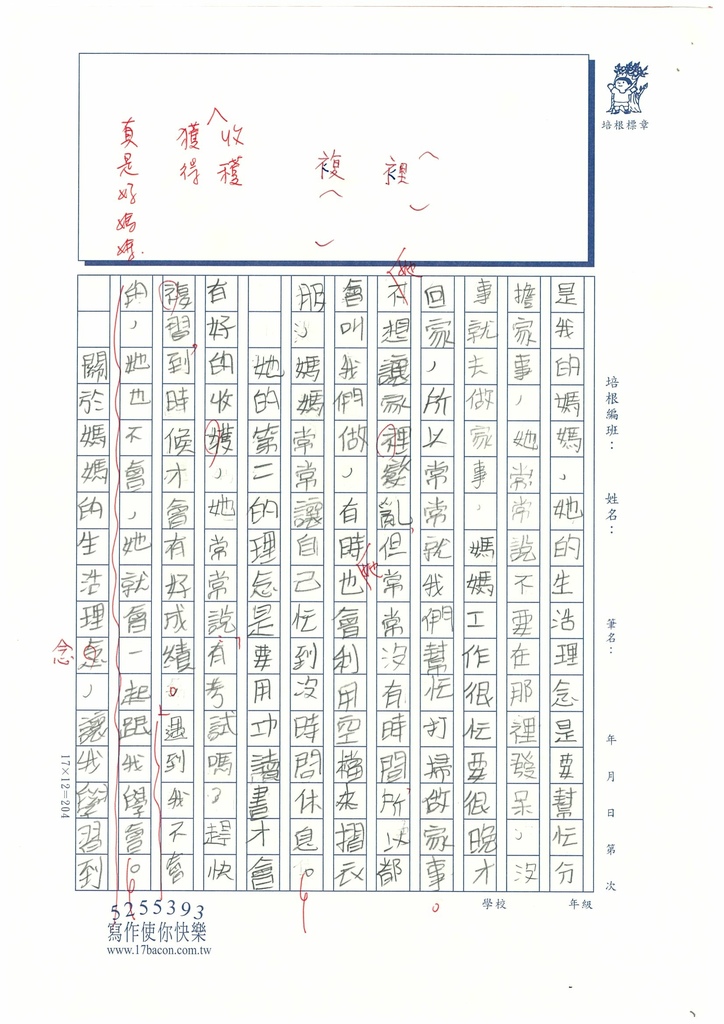 培根標章
真是好媽媽.
獲得
收穫
複
裡
她
培根編班：
姓名：
筆名：
年 月 日 第 次
是我的媽媽，她的生活理念是要幫忙分
擔家事，她常常說不要在那裡發呆，沒
事就去做家事，媽媽工作很忙要很晚才
回家，所以常常就我們幫忙打掃做家事。
不想讓家裡變亂，但常常沒有時間，所以都
會叫我們做，有時也會利用空檔來摺衣
她
服，媽媽常常讓自己忙到沒時間休息。
她的第二的理念是要用功讀書才會
有好的收穫，她常常說「有考試嗎？趕快
複習到時候才會有好成績。」遇到我不會
的，她也不會，她就會一起跟我學會。
關於媽媽的生活理念，讓我學習到
念
17×12=204
5255393
寫作使你快樂
www.17bacon.com.tw
學校
年級